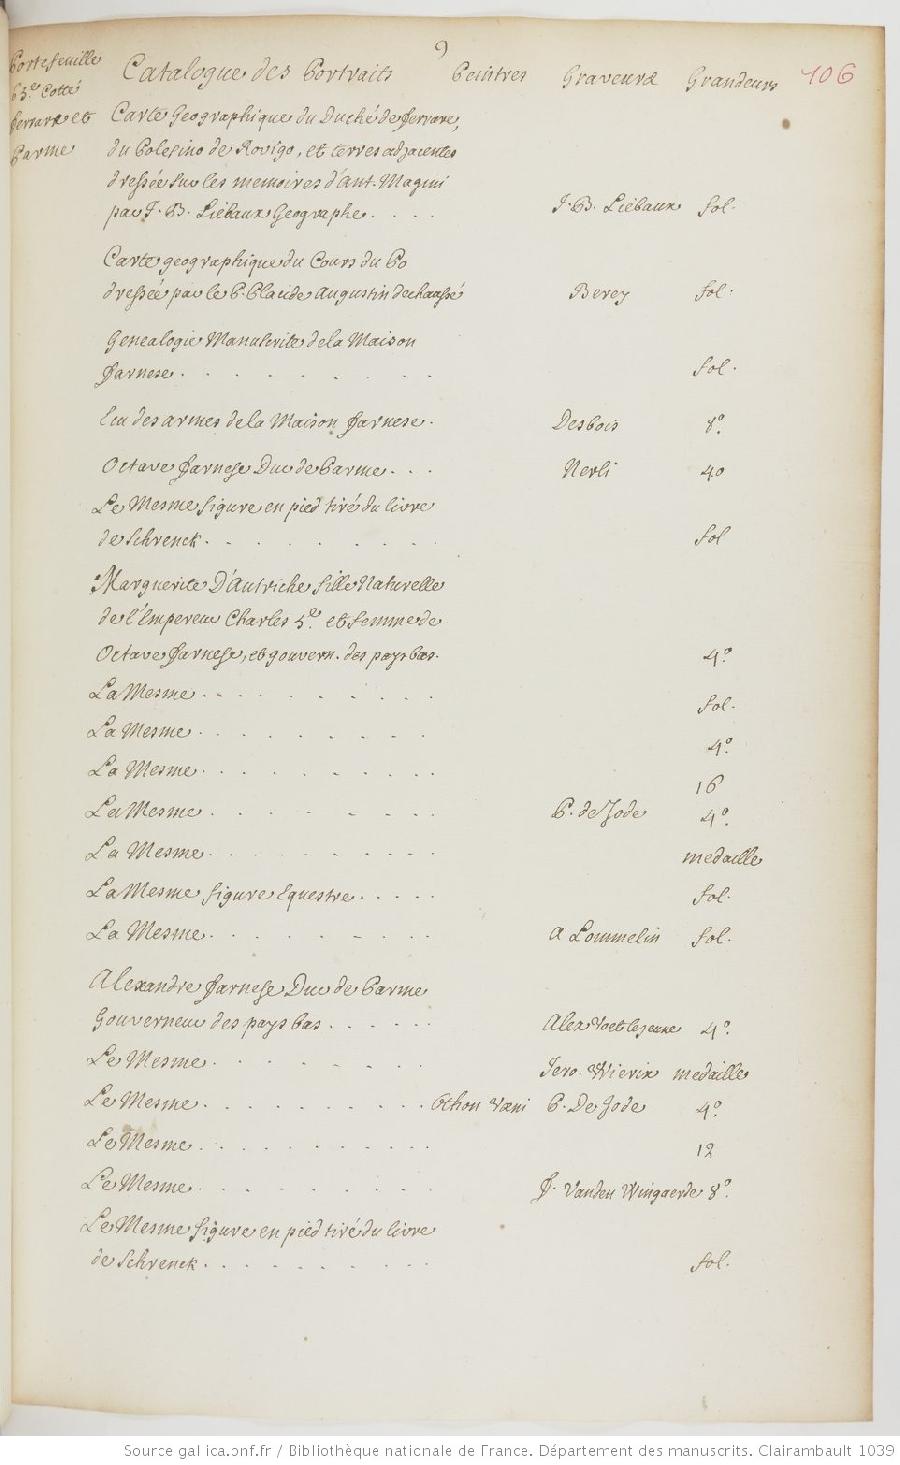 9
Portefeuille
63.e Cotté
Ferrare et
Parme
Catalogue des Portraits Peintres Graveurs Grandeurs 106
Carte Geographique du Duché de Ferrare,
du Polesino de Rovigo, et terres adjacentes
dressée sur les memoires d'Ant. Magini
par J. B. Liébaux Geographe. . . . J. B. Liébaux fol.
Carte geographique du Cours du Po
dressée par le P. Placide Augustin dechaussé Berey fol.
Genealogie Manuscrite de la Maison
Farnese. . . . . . . . . fol.
des armes de la Maison Farnese. Desbois 8.o
Octave Farnese Duc de Parme. . . Nerli 4o
Le Mesme figure en pied tiré du livre
de Schrenck. . . . . . . . fol
Marguerite D'Autriche fille Naturelle
de l'Empereur Charles 5.e et femme de
Octave Farnese, et gouvern. des pays bas. 4.o
La Mesme. . . . . . . . fol.
La Mesme. . . . . . . . 4.o
La Mesme. . . . . . . . 16
La Mesme. . . . . . . . P. de Jode 4.o
La Mesme. . . . . . . . medaille
La Mesme figure Equestre. . . . . fol.
La Mesme. . . . . . . . A Lommelin fol.
Alexandre Farnese Duc de Parme
Gouverneur des pays bas. . . . . Alex Voet le jeune 4.o
Le Mesme. . . . . . . Jero. Wierix medaille
Le Mesme. . . . . . . . . Othon Væni P. De Jode 4.o
Le Mesme. . . . . . . . . 12
Le Mesme. . . . . . . . F. Vanden Wingaerde 8.o
Le Mesme figure en pied tiré du livre
de Schrenck. . . . . . . . fol.
Source gallica.bnf.fr / Bibliothèque nationale de France. Département des manuscrits. Clairambault 1039